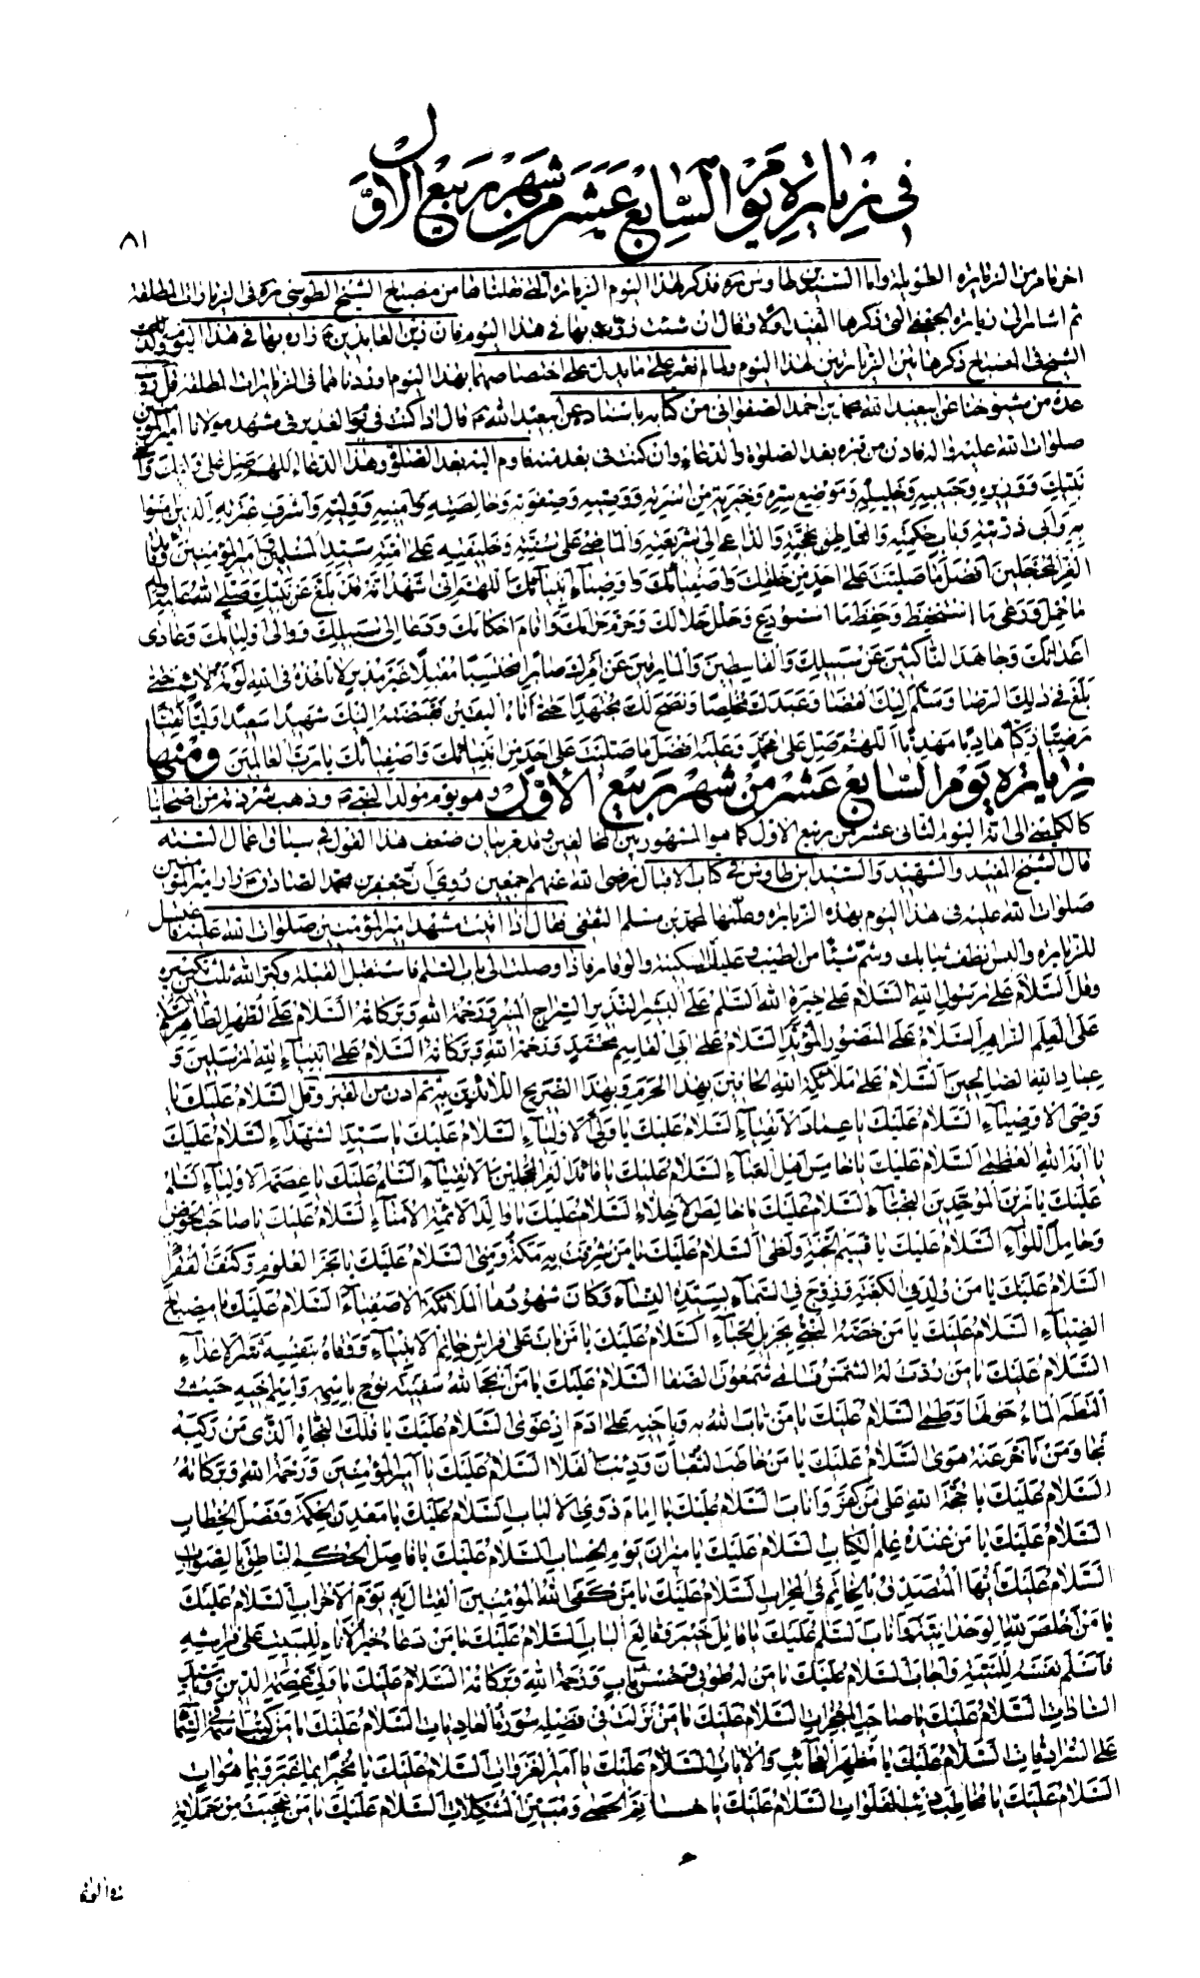 في زيارة يوم السابع عشر من شهر ربيع الاول
٨١
اخر ما مر من الزيارة الطويلة واما السيد بن طاوس ره فذكر لهذا اليوم الزيارة التي نقلناها من مصباح الشيخ الطوسي ره في الزيارات المطلقة
ثم اشار الى زيارة التي ذكرها المفيد اولا وقال ان شئت زره بها في هذا اليوم فان زين العابدين ع زاره بها في هذا اليوم
الشيخ في المصباح ذكر هاتين الزيارتين لهذا اليوم ولما لم نعثر على ما يدل على اختصاصهما بهذا اليوم اوردناهما في الزيارات المطلقة
عدة من شيوخنا عن ابيعبد الله محمد بن احمد الصفواني من كتابه باسناده عن ابيعبد الله ع قال اذا كنت في يوم الغدير في مشهد مولانا امير المؤمنين
صلوات الله عليه واله فادن من قبره بعد الصلوة والدعاء وان كنت في بعد منه فاوم اليه بعد الصلوة وهذا الدعاء اللهم صل على وليك
نبيك ووزيره وحبيبه وخليله وموضع سره وخيرته من اسرته ووصيه وصفوته وخالصته وامينه ووليه واشرف عترته الذين امنوا
به وابي ذريته وباب حكمته والناطق بحجته والداعي الى شريعته والماضي على سنته وخليفته على امته سيد المسلمين امير المؤمنين
الغر المحجلين افضل ما صليت على احد من خلقك واصفيائك واوصياء انبيائك اللهم اني اشهد انه قد بلغ عن نبيك صلى الله عليه واله
ما حمل ورعى ما استحفظ وحفظ ما استودع وحلل حلالك وحرم حرامك واقام احكامك ودعا الى سبيلك ووالى اوليائك وعادى
اعدائك وجاهد الناكثين عن سبيلك والقاسطين والمارقين عن امرك صابرا محتسبا مقبلا غير مدبر لا تاخذه في الله لومة لائم حتى
بلغ في ذلك الرضا وسلم اليك القضا وعبدك مخلصا ونصح لك مجتهدا حتى اتاه اليقين فقبضته اليك شهيدا سعيدا وليا تقيا
رضيا زكيا هاديا مهديا اللهم صل على محمد وعليه افضل ما صليت على احد من انبيائك واصفيائك يا رب العالمين ومنها
زيارة يوم السابع عشر من شهر ربيع الاول وهو يوم مولد النبي ص وذهب شرذمة من اصحابنا
كالكليني الى انه اليوم الثاني عشر من ربيع الاول كما هو المشهور بين المخالفين وقد مر بيان ضعف هذا القول في سياق اعمال السنة
قال الشيخ المفيد والشهيد والسيد ابن طاوس في كتاب الاقبال رضي الله عنهم اجمعين روي ان جعفر بن محمد الصادق ع زار امير المؤمنين
صلوات الله عليه في هذا اليوم بهذه الزيارة وعلمها لمحمد بن مسلم الثقفي فقال اذا اتيت مشهد امير المؤمنين صلوات الله عليه فاغتسل
للزيارة والبس نظف ثيابك وشم شيئا من الطيب وعليك السكينة والوقار فاذا وصلت الى باب السلم فاستقبل القبلة وكبر الله ثلثين تكبيرة
وقل السلام على رسول الله السلام على خيرة الله السلم على البشير النذير السراج المنير ورحمة الله وبركاته السلام على الطهر الطاهر السلام
على العلم الزاهر السلام على المنصور المؤيد السلام على ابي القاسم محمد ورحمة الله وبركاته السلام على انبياء الله المرسلين و
عباد الله الصالحين السلام على ملائكة الله الحافين بهذا الحرم وبهذا الضريح اللائذين به ثم ادن من القبر وقل السلام عليك يا
وصي الاوصياء السلام عليك يا عماد الاتقياء السلام عليك يا ولي الاولياء السلام عليك يا سيد الشهداء السلام عليك
يا اية الله العظمى السلام عليك يا خامس اهل العباء السلام عليك يا قائد الغر المحجلين الاتقياء السلم عليك يا عصمة الاولياء السلم
عليك يا زين الموحدين النجباء السلام عليك يا خالص الاخلاء السلام عليك يا والد الائمة الامناء السلام عليك يا صاحب الحوض
وحامل اللواء السلام عليك يا قسيم الجنة ولظى السلام عليك يا من شرفت به مكة ومنى السلام عليك يا بحر العلوم وكنف الفقراء
السلام عليك يا من ولد في الكعبة وزوج في السماء بسيدة النساء وكان شهودها الملائكة الاصفياء السلام عليك يا مصباح
الضياء السلام عليك يا من خصه النبي بجزيل الحباء السلام عليك يا من بات على فراش خاتم الانبياء ووقاه بنفسه شر الاعداء
السلام عليك يا من ردت له الشمس فسامى شمعون الصفا السلام عليك يا من انجى الله سفينة نوح باسمه واسم اخيه حيث
التطم الماء حولها وطمى السلام عليك يا من تاب الله به وباخيه على ادم اذ غوى السلام عليك يا فلك النجاة الذي من ركبه
نجا ومن تاخر عنه هوى السلام عليك يا من خاطب الثعبان وذئب الفلا السلام عليك يا امير المؤمنين ورحمة الله وبركاته
السلام عليك يا حجة الله على من كفر واناب السلام عليك يا امام ذوي الالباب السلام عليك يا معدن الحكمة وفصل الخطاب
السلام عليك يا من عنده علم الكتاب السلام عليك يا ميزان يوم الحساب السلام عليك يا فاصل الحكم الناطق بالصواب
السلام عليك ايها المتصدق بالخاتم في المحراب السلام عليك يا من كفى الله المؤمنين القتال به يوم الاحزاب السلام عليك
يا من اخلص لله الوحدانية واناب السلم عليك يا قاتل خيبر وقالع الباب السلام عليك يا من دعاه خير الانام للمبيت على فراشه
فاسلم نفسه للمنية واجاب السلام عليك يا من له طوبى وحسن ماب ورحمة الله وبركاته السلام عليك يا ولي عصمة الدين
السادات السلام عليك يا صاحب المعجزات السلام عليك يا من نزلت في فضله سورة العاديات السلام عليك يا من كتب اسمه في السماء
على السرادقات السلام عليك يا مظهر العجائب والايات السلام عليك يا امير الغزوات السلام عليك يا مخبرا بما غبر وبما هو ات
السلام عليك يا مخاطب ذئب الفلوات السلام عليك يا خاتم الحصى ومبين المشكلات السلام عليك يا من عجبت من حملاته